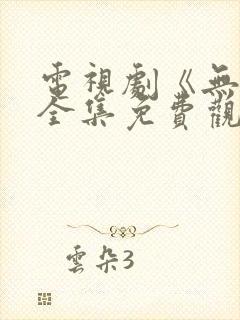 電視劇《無
全集免費觀
雲朵3